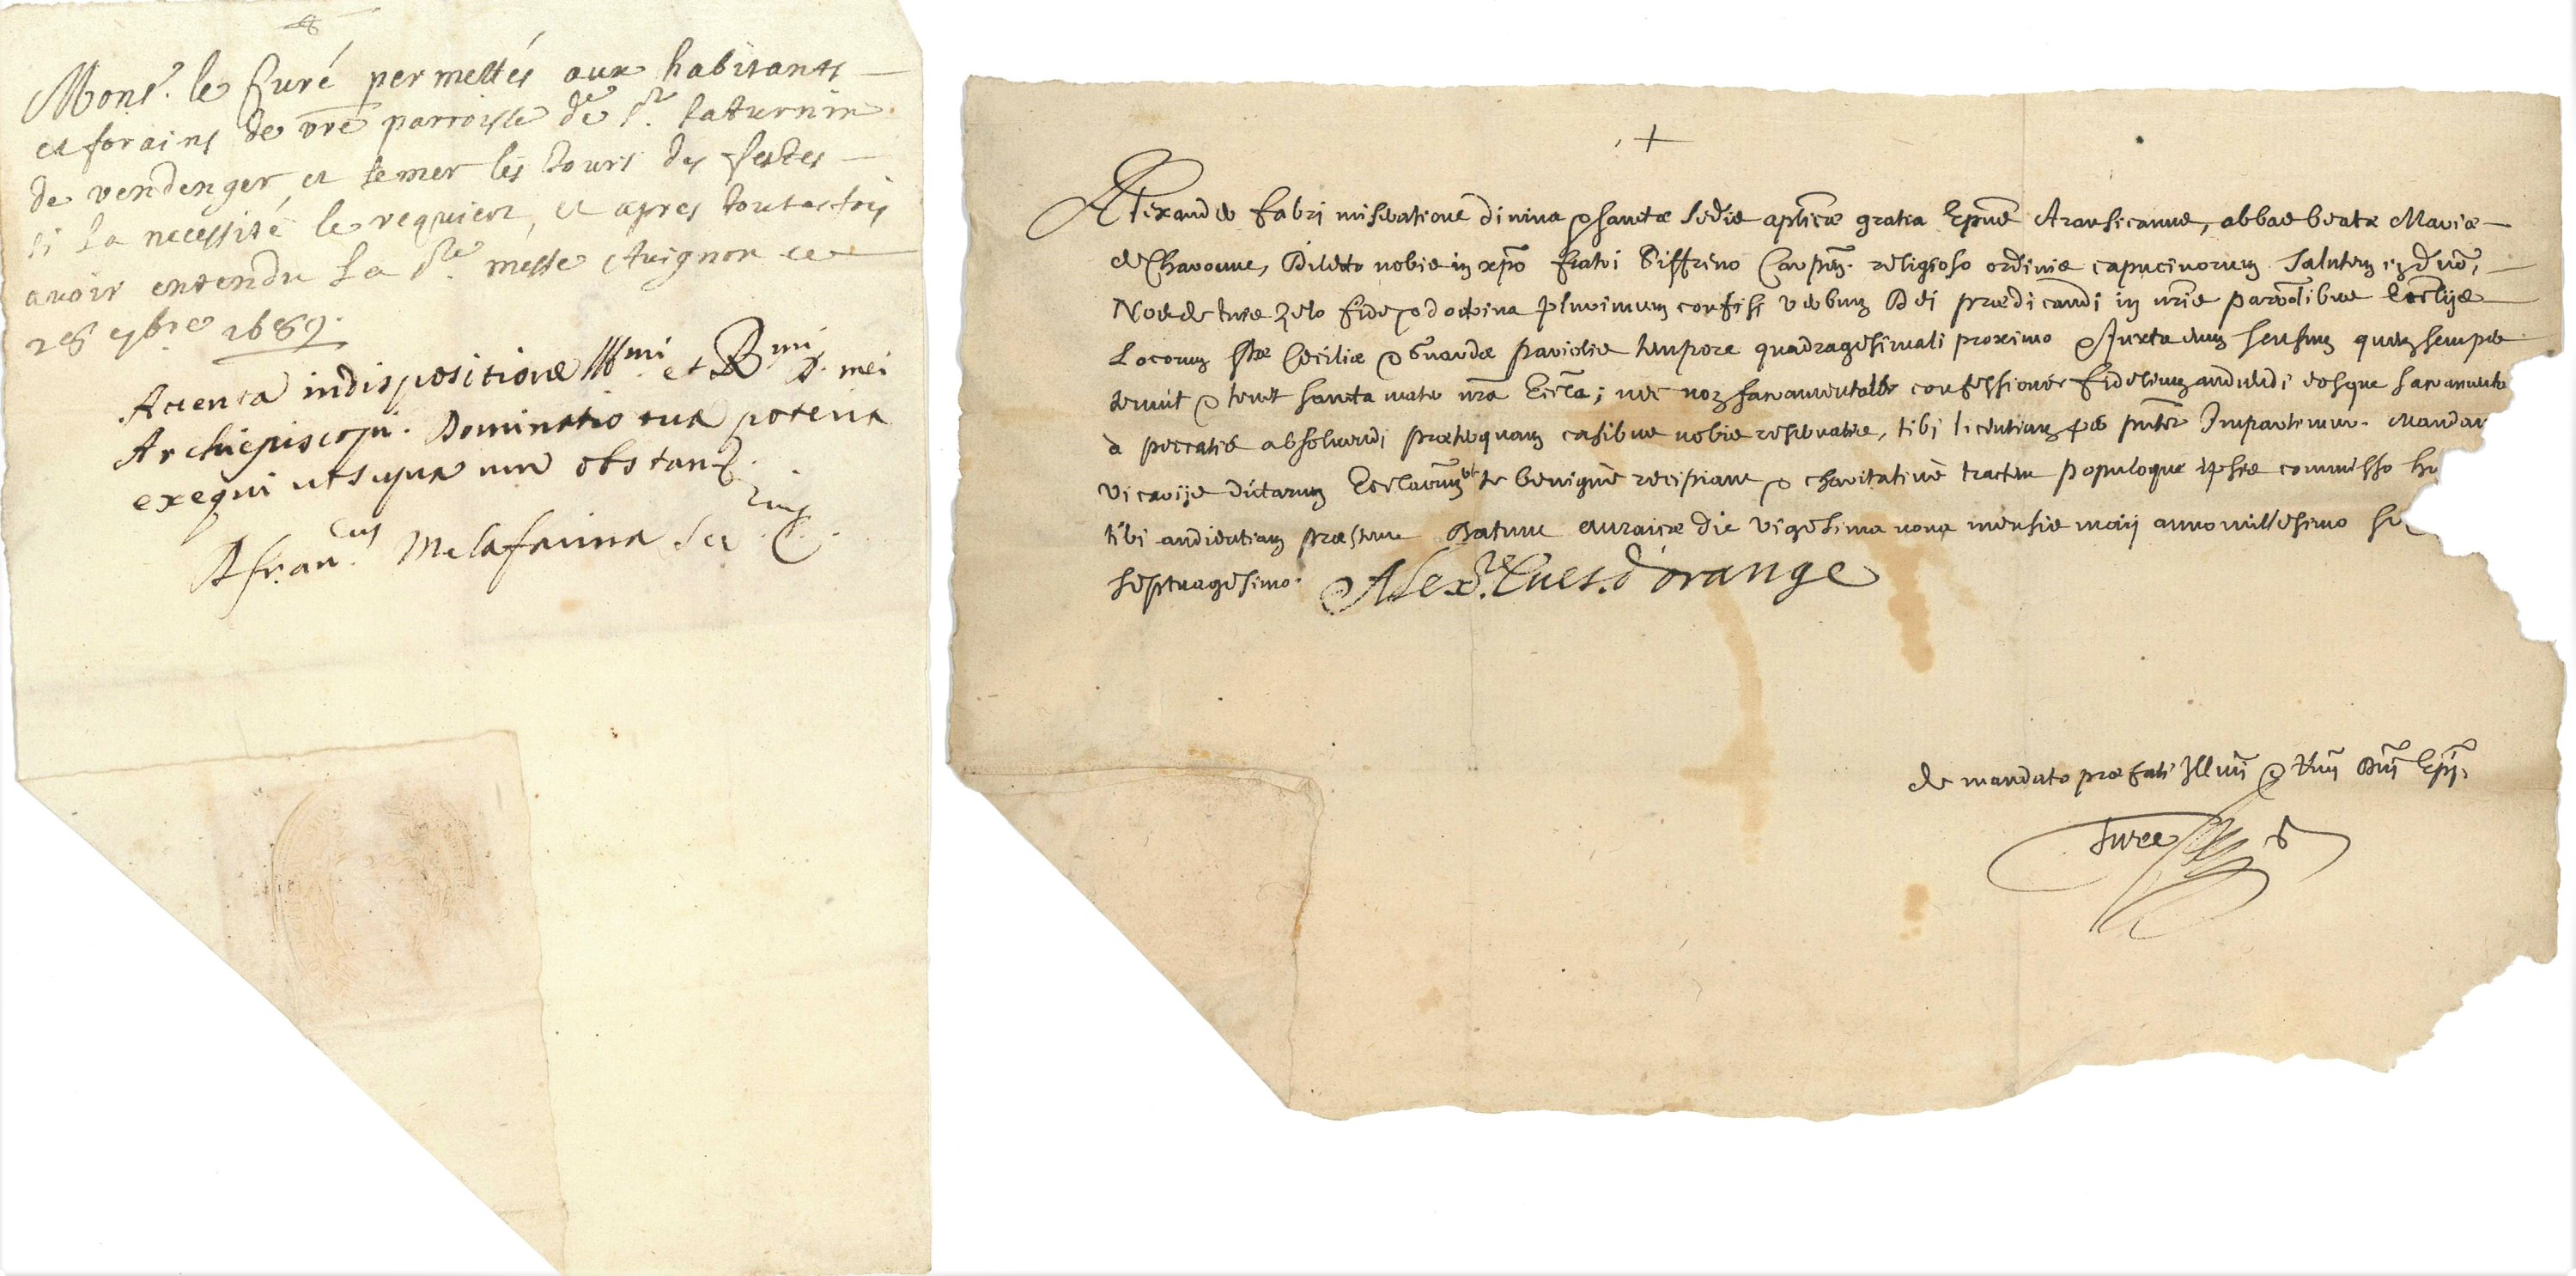 Mons.r le Curé permettés aux habitants
et forains de vre parroisse de St. Saturnin
de vendenger, et semer les Jours des festes
si la necessité le requiert, et apres toutesfois
avoir entendu la Ste. messe Avignon ce
28 7bre 1689.
Attenta indispositione Illmi. et Rmi. D. mei
Archiepiscopi. Dominatio tua poterit
exequi ut supra non obstan.
Fran.cus Melafarina
+
Alexander Fabri miseratione divina & sanctæ sedis aplicæ gratia Epus Arausicanus, abbas beatæ Mariæ
de Charonne, Dilecto nobis in xpo fratri Siffreno Carpen. religioso ordinis capucinorum Salutem in dno,
Nos de tuis zelo fide & doctrina plurimum confisi verbum Dei prædicandi in nris parolibus Ecclijs
Locorum Stæ Cecilliæ & Gravidæ tempore quadragesimali proximo & Juxta eum sensum quem semper
tenuit & tenet sancta mater nra Eccla; nec non sacramentales confessiones fidelium audiendi eosque sacramente
a peccatis absolvendi præterquam casibus nobis reservatis, tibi licentiam per pntes Impartimur. Mandan
vicarijs dictarum Ecclarum ut te benignè recipiant & charitativè tractent populoque ipsis commisso
tibi audientiam præstent Datum auraicæ die vigesima nona mensis maij anno millesimo
septuagesimo. Alexre. Eves. d'orange
de mandato præfati Illmi & Rmi Dni Epi.